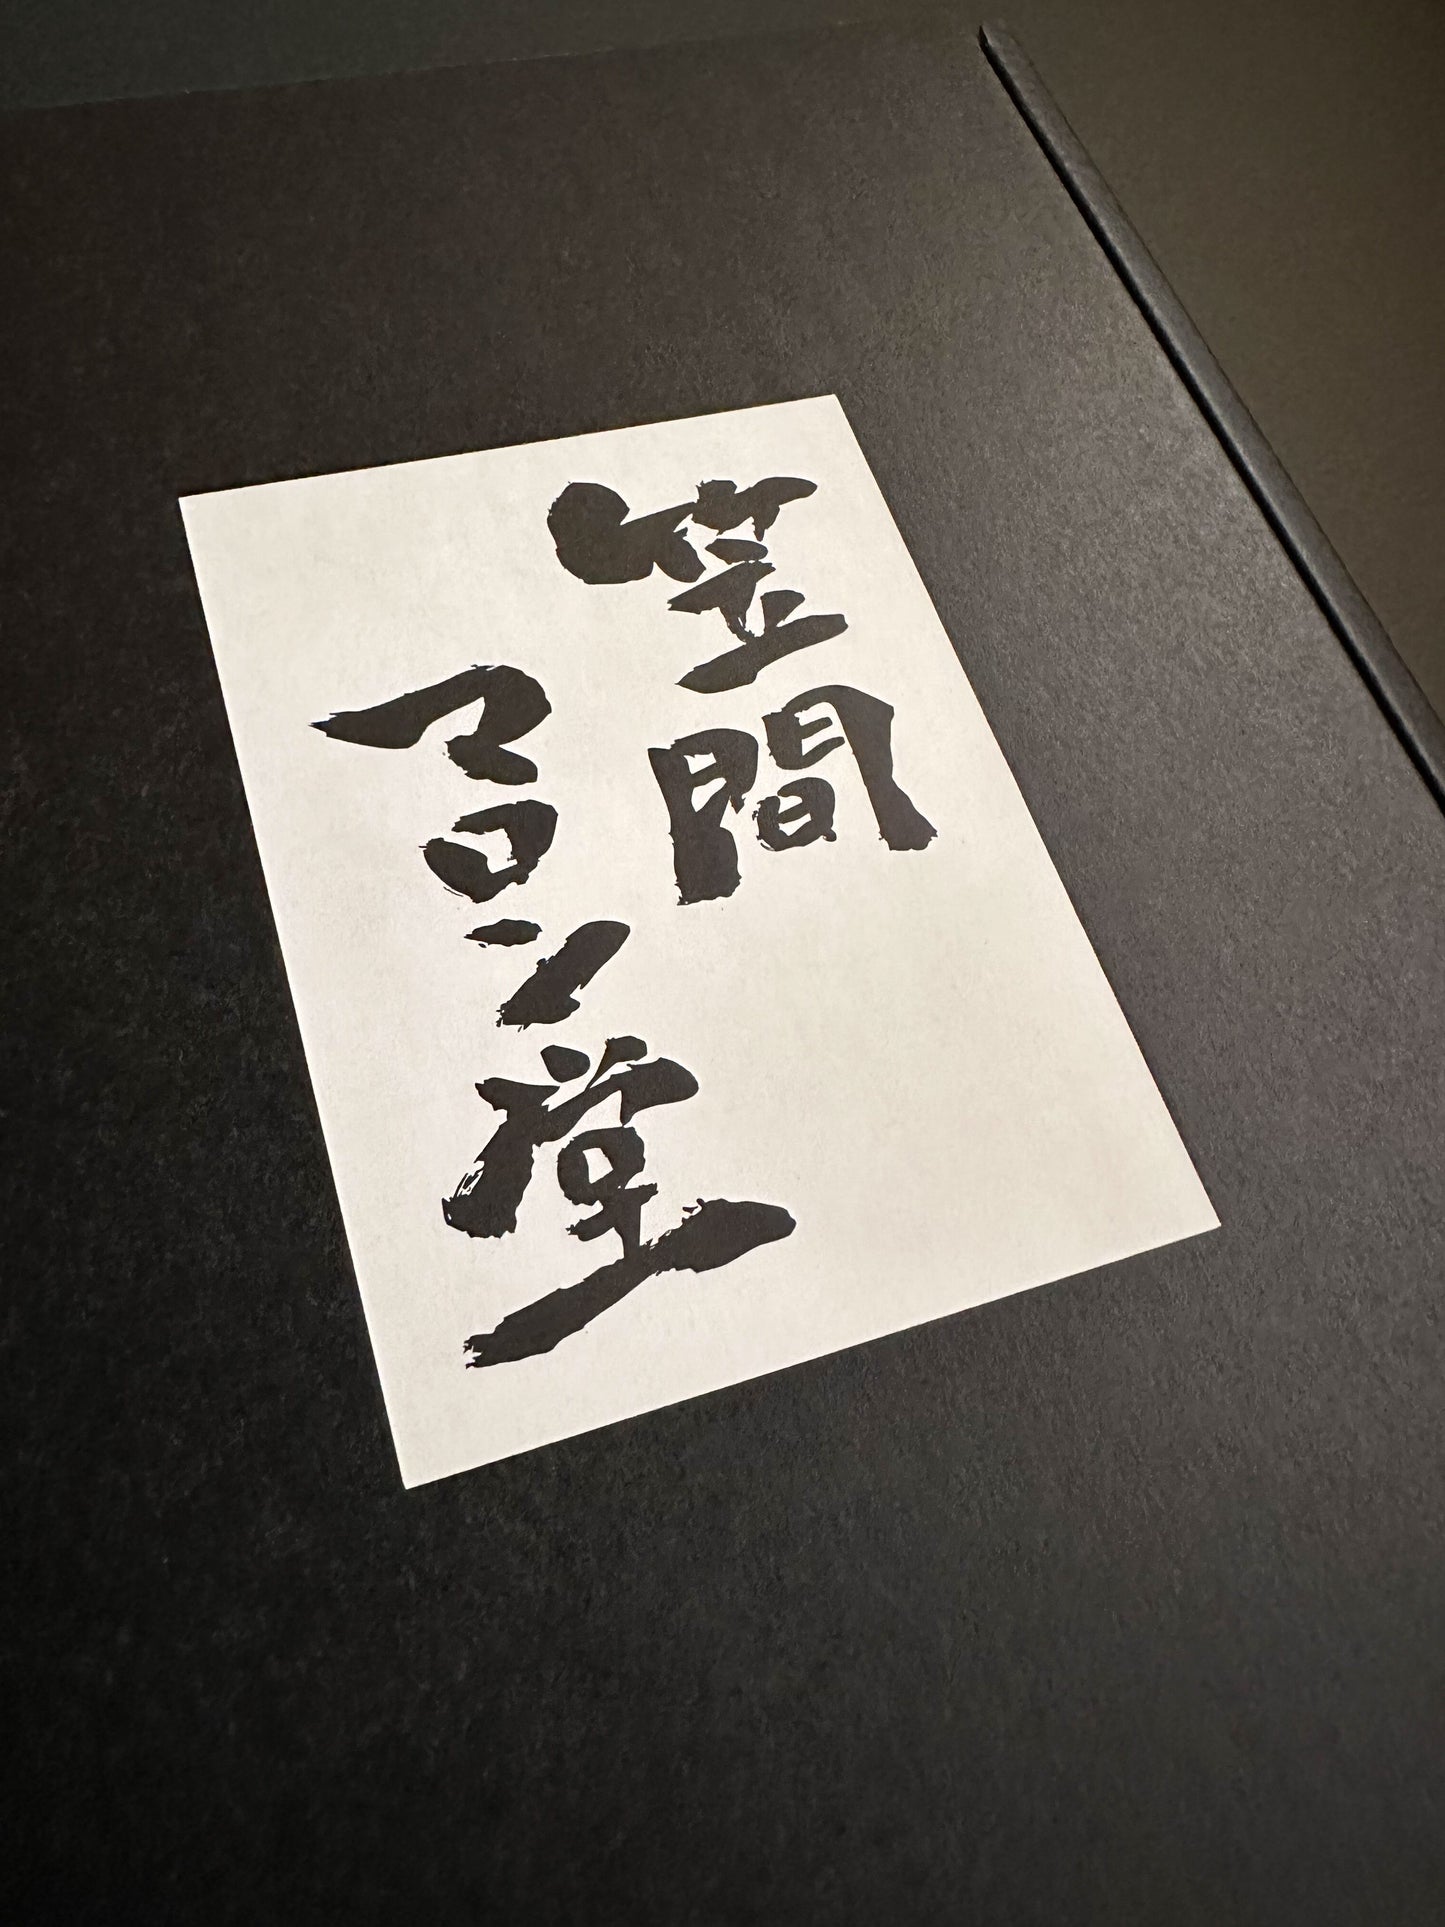 笠間
マロン堂